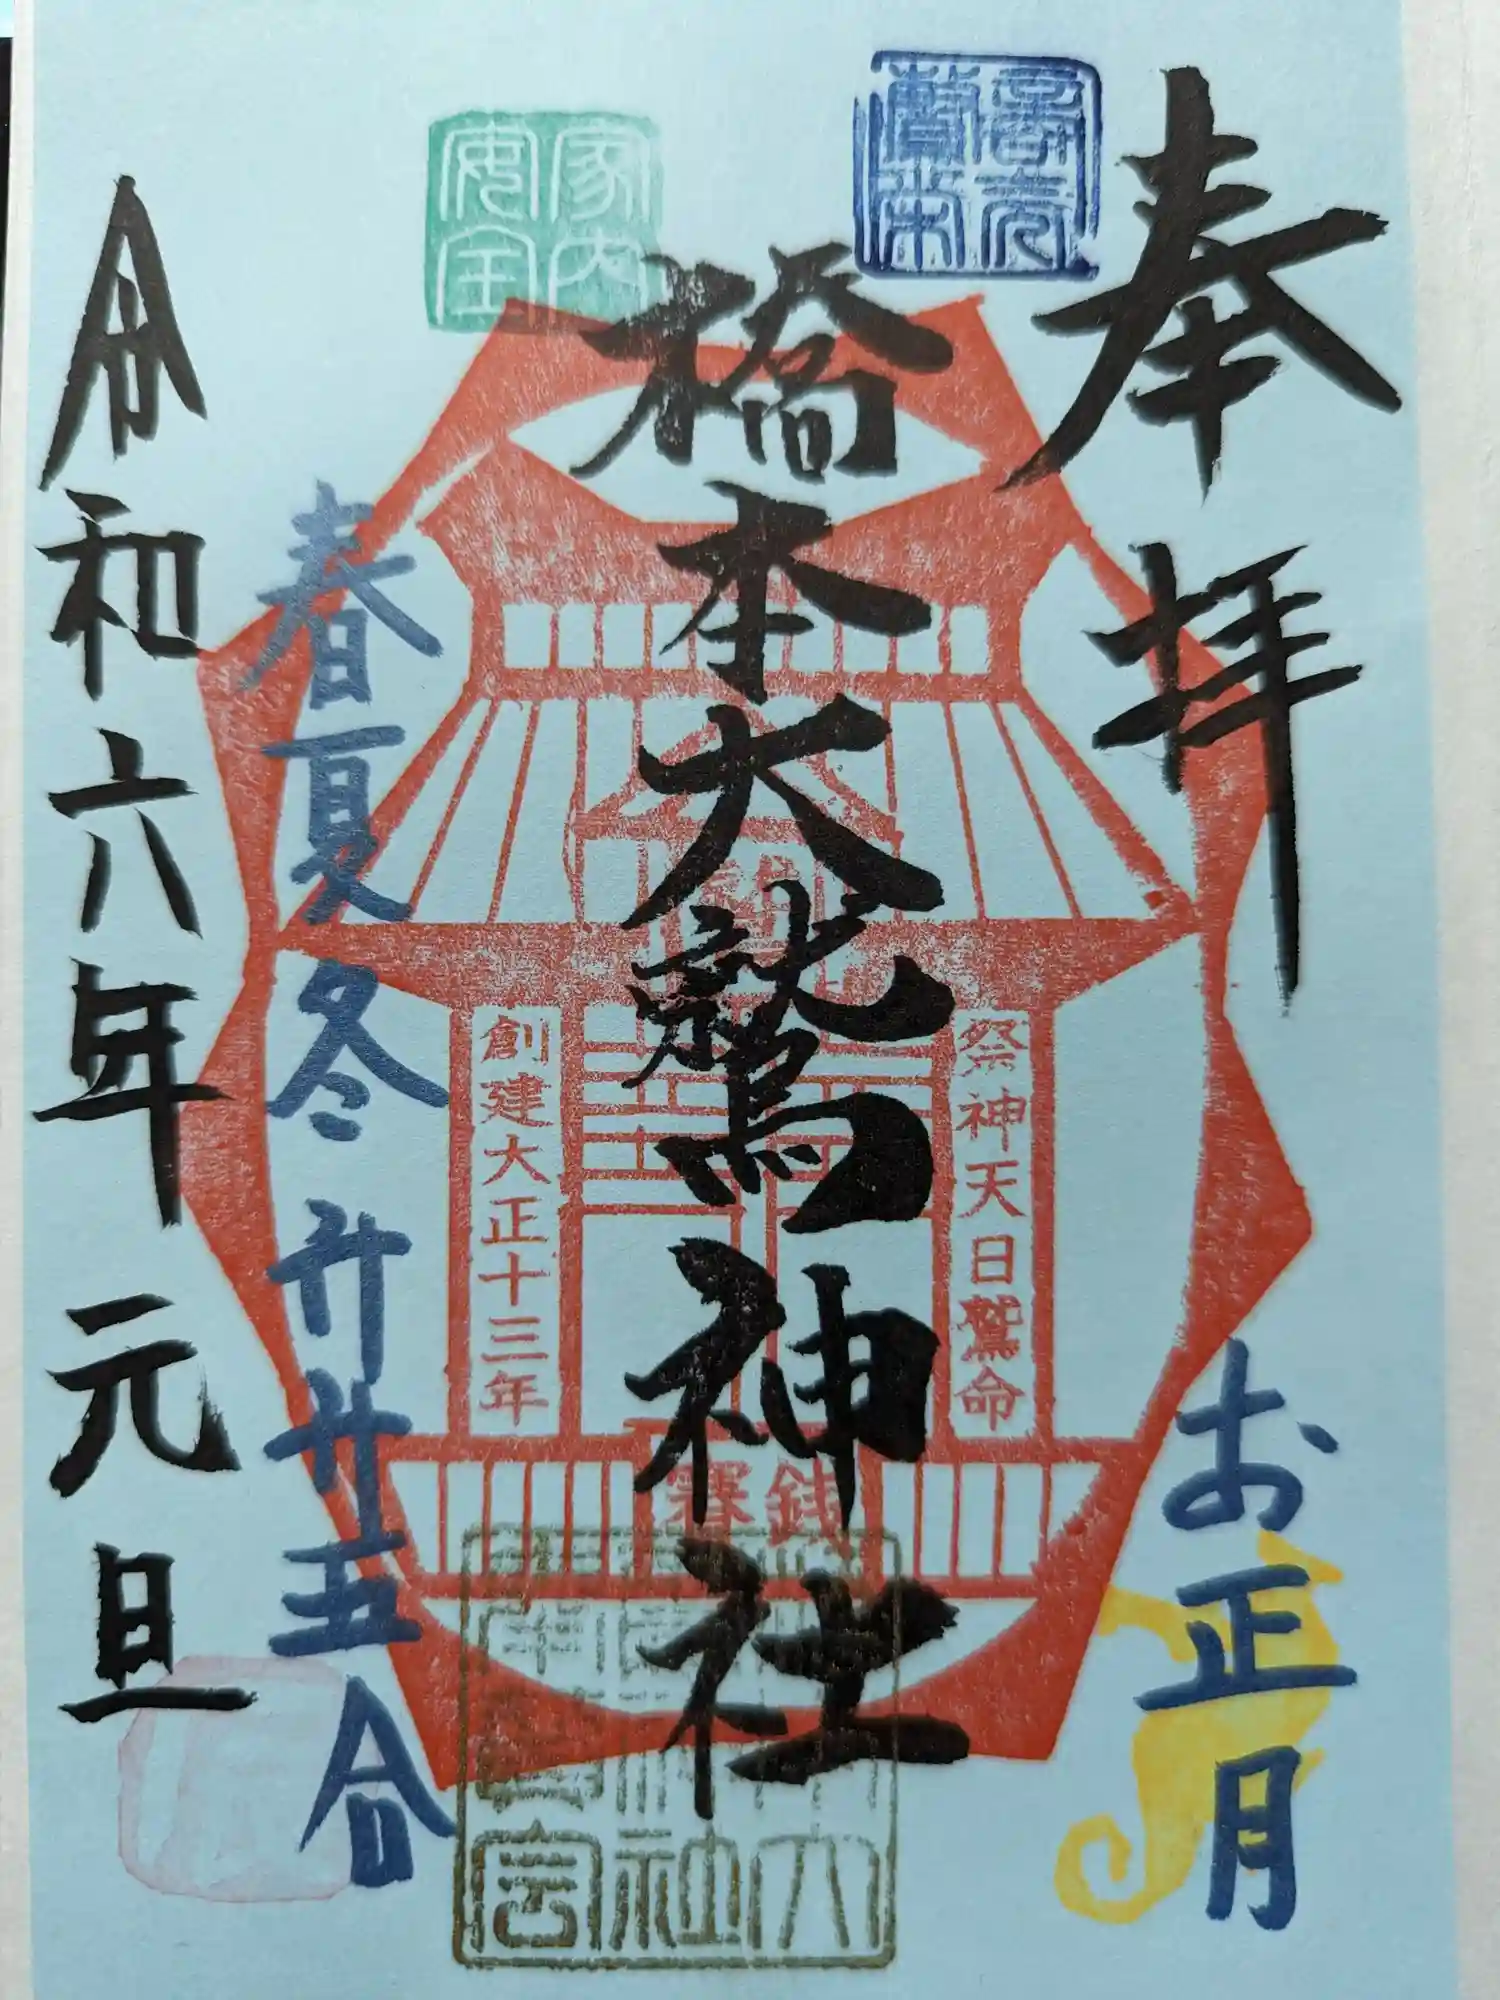 奉拝
お正月
橋本大鷲神社
祭神天日鷲命
賽銭
創建大正十三年
家内安全
春夏冬 廾廿五合
令和六年 元旦